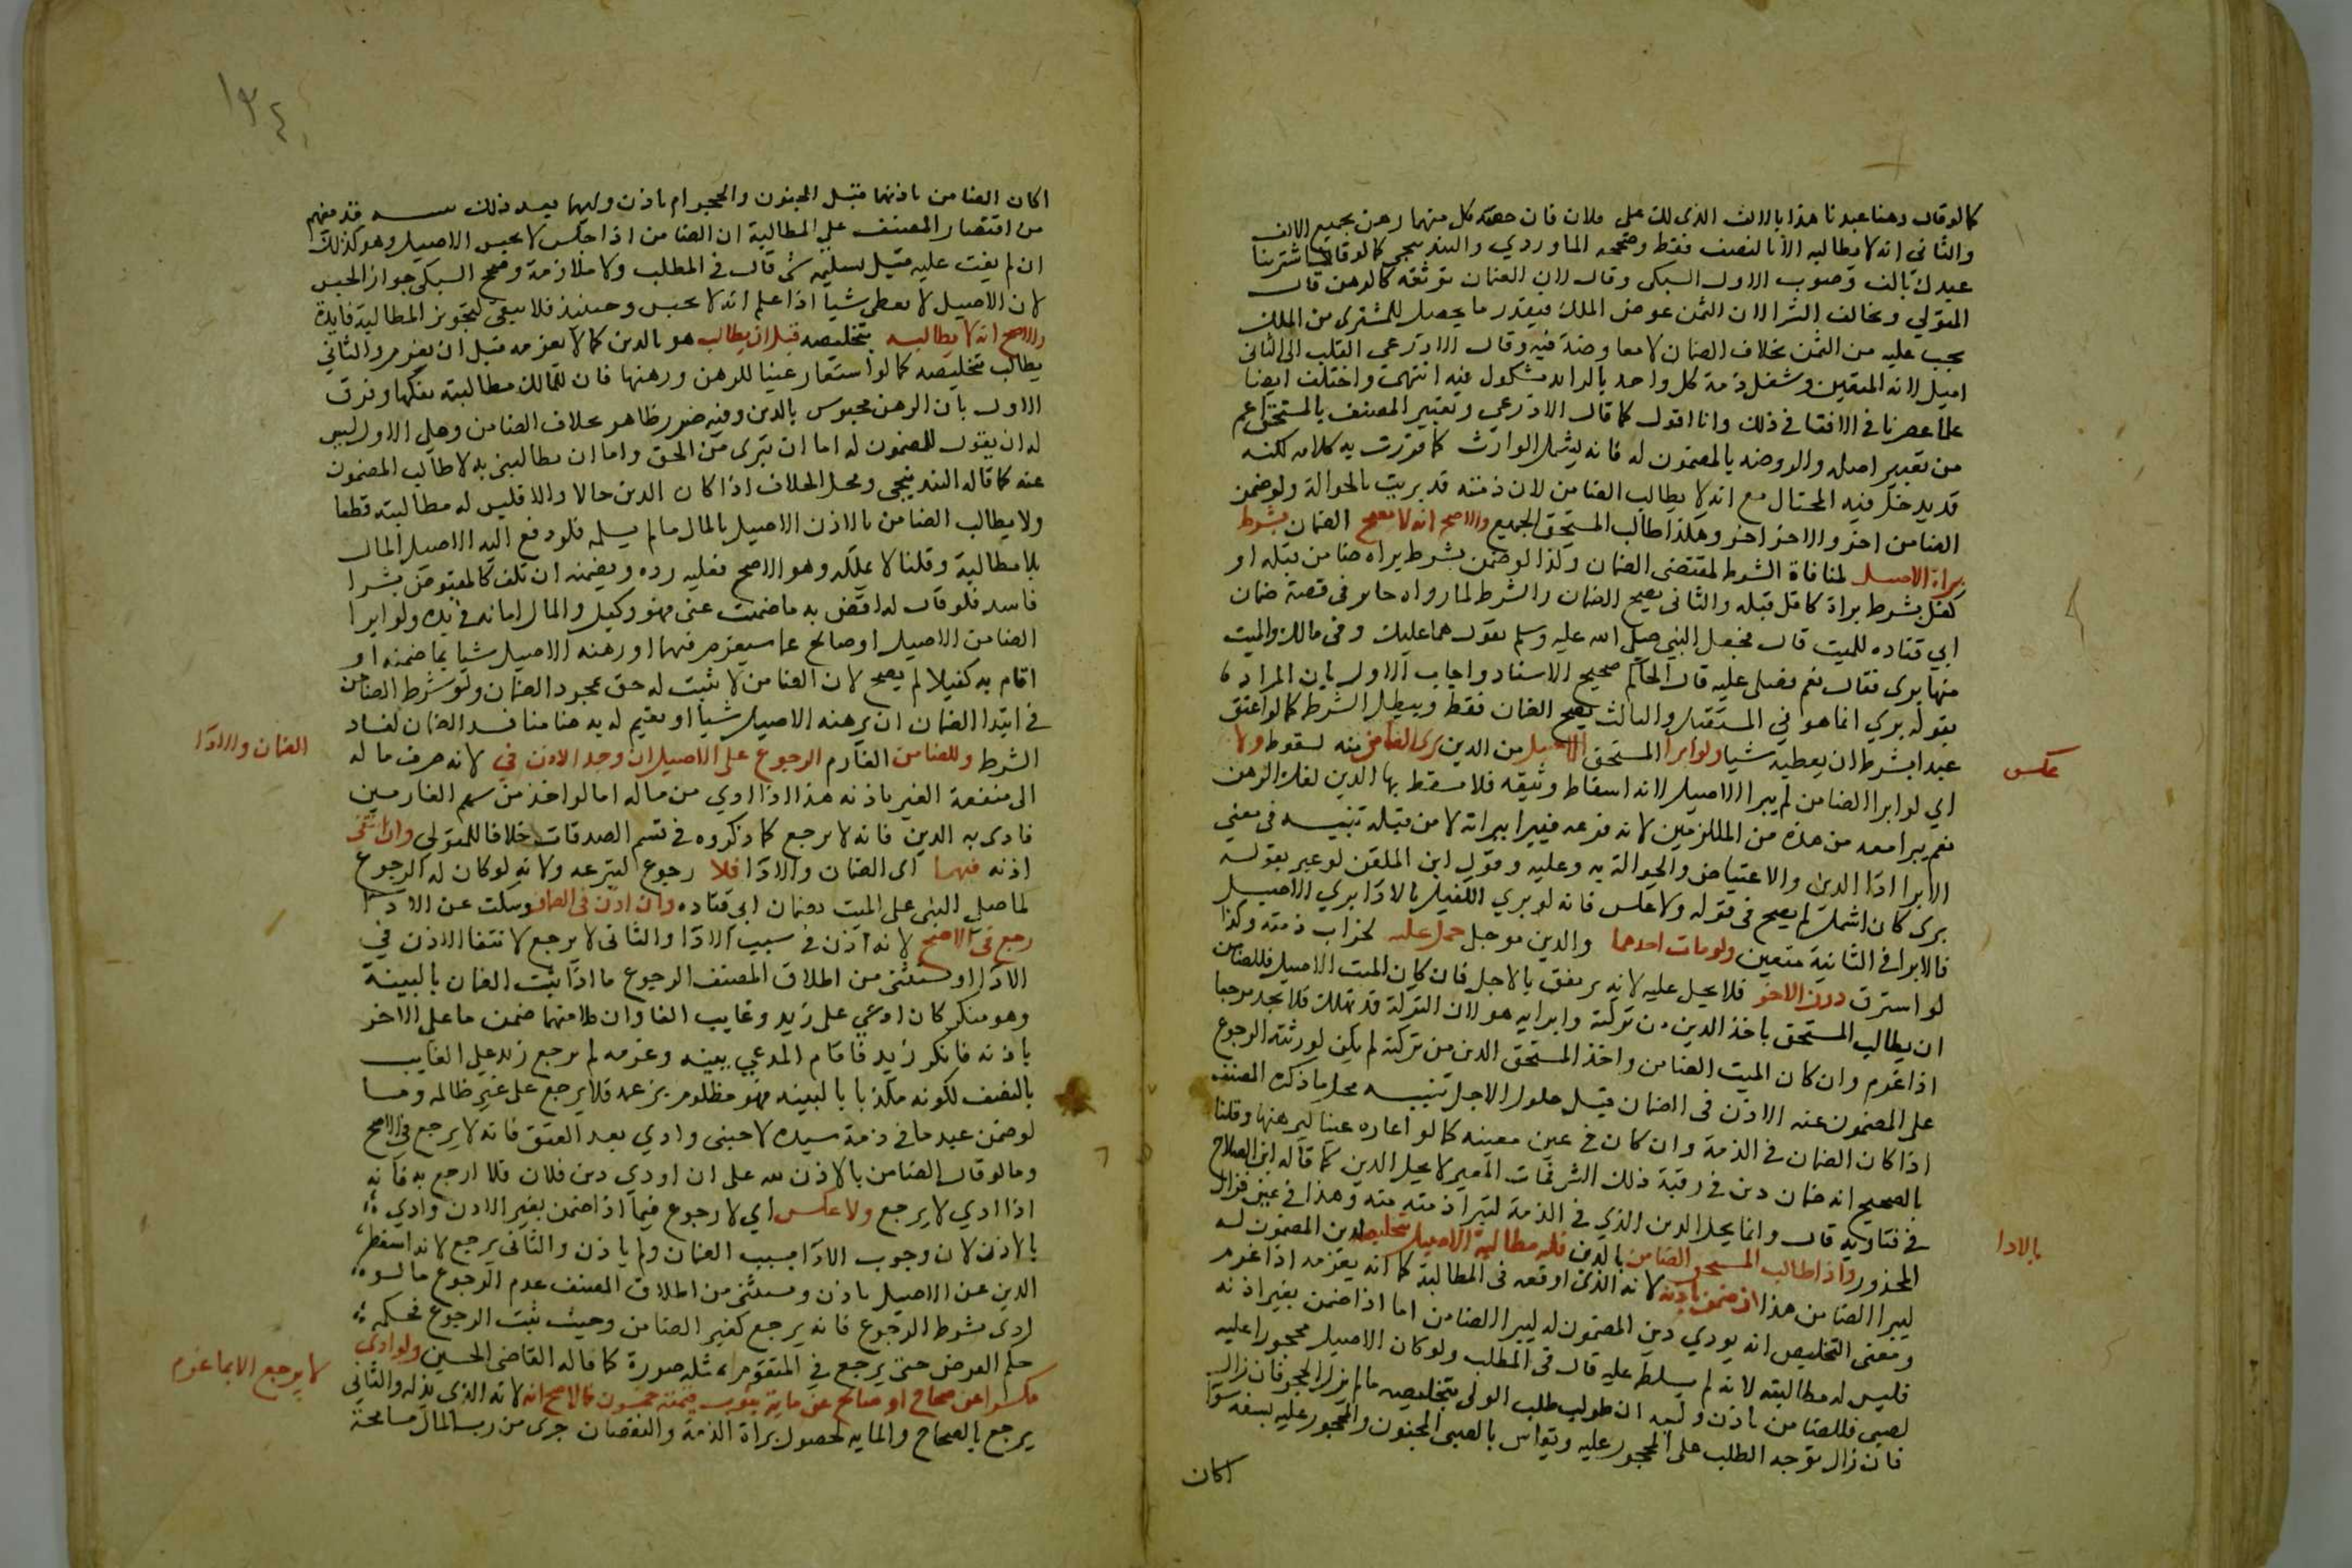 كما لو قال رهنا عبدنا هذا بالالف الذي لك على فلان فان حصة كل منهما رهن بجميع الالف
والثاني انه لا يطالبه الا بالنصف فقط وصححه الماوردي والبندنيجي كما لو قالا اشترينا
عبدك بالف وصوب الاول السبكي وقال لان الضمان توثقه كالرهن قال
المتولي ويخالف الشرا لان الثمن عوض الملك فيقدر ما يحصل للمشتري من الملك
يجب عليه من الثمن بخلاف الضمان لا معاوضة فيه وقال الاذرعي القلب الى الثاني
اميل لانه المتيقن وشغل ذمة كل واحد بالزايد مشكوك فيه انتهت واختلف ايضا
علما عصرنا في الافتا في ذلك وانا اقول كما قال الاذرعي وتعبير المصنف بالمستحق اعم
من تعبير اصله والروضه بالمضمون له فانه يشمل الوارث كما قررت به كلامه لكنه
قد يدخل فيه المحتال مع انه لا يطالب الضامن لان ذمته قد بريت بالحوالة ولو ضمن
الضامن اخر والاخر اخر وهكذا طالب المستحق الجميع والاصح انه لا يصح الضمان بشرط
براة الاصيل لمنافاة الشرط لمقتضى الضمان وكذا لو ضمن بشرط براه ضامن قبله او
كفل بشرط براة كافل قبله والثاني يصح الضمان والشرط لما رواه جابر في قصة ضمان
ابي قتاده للميت قال فجعل النبي صلى الله عليه وسلم يقول هما عليك وفي مالك والميت
منها بري فقال نعم فصلى عليه قال الحاكم صحيح الاسناد واجاب الاول بان المراد
بقوله بري انما هو في المستقبل والثالث يصح الضمان فقط ويبطل الشرط كما لو اعتق
عبدا بشرط ان يعطيه شيا ولو ابرا المستحق الاصيل من الدين برى الضامن منه لسقوطه ولا
عكس
اي لو ابرا الضامن لم يبرا الاصيل لانه اسقاط وثيقه فلا يسقط بها الدين لفك الرهن
نعم يبرا معه من هذه من الملتزمين لانه فرعه فيبرا ببراته لا من قبله تنبيه في معنى
الابرا ادا الدين والاعتياض والحوالة به وعليه وقول ابن الملقن لو عبر بقوله
برى كان اشمل لم يصح في قوله ولا عكس فانه لو بري الكفيل بالادا بري الاصيل
فالابرا في الثانية متعين ولو مات احدهما والدين موجل حمل عليه لخراب ذمته وكذا
لو استرق دون الاخر فلا يحل عليه لانه يرتفق بالاجل فان كان الميت الاصيل فللضامن
ان يطالب المستحق باخذ الدين من تركته وابرايه هو لان التركة قد تهلك فلا يجد مرجعا
اذا غرم وان كان الميت الضامن واخذ المستحق الدين من تركته لم يكن لورثته الرجوع
على المضمون عنه الاذن في الضمان قبل حلول الاجل تنبيه محل ما ذكره المصنف
اذا كان الضمان في الذمة وان كان في عين معينه كما لو اعاره عينا ليرهنها وقلنا
بالصحيح انه ضمان دين في رقبة ذلك الشي فمات المعير لا يحل الدين كما قاله ابن الصلاح
في فتاويه قال وانما يحل الدين الذي في الذمة لتبرا ذمته منه وهذا في عين فزال
المحذور واذا طالب المستحق الضامن بالدين فله مطالبة الاصيل بتخليصه
بالادا
لدين المضمون له
ليبرا الضامن هذا ان ضمن باذنه لانه الذي اوقعه في المطالبة كما انه يغرمه اذا غرم
ومعنى التخليص انه يودي دين المضمون له ليبرا الضامن اما اذا ضمن بغير اذنه
فليس له مطالبته لانه لم يسلط عليه قال في المطلب ولو كان الاصيل محجورا عليه
لصبي فللضامن باذن وليه ان طولب طلب الولي بتخليصه ما لم يزل الحجر فان زال
فان زال توجد الطلب على المحجور عليه ويقاس بالصبي المجنون والمحجور عليه بسفه سوا
اكان
١٣٤
اكان الضامن باذنهما قبل الجنون والحجر ام باذن وليهما بعد ذلك تنبيه قد يفهم
من اقتصار المصنف على المطالبة ان الضامن اذا حبس لا يحبس الاصيل وهو كذلك
ان لم يفت عليه قبل تسليمه شي قال في المطلب ولا ملازمة وصحح السبكي جواز الحبس
لان الاصيل لا يعطي شيا اذا علم انه لا يحبس وحينئذ فلا يبقى لتجويز المطالبة فايدة
والاصح انه لا يطالبه بتخليصه قبل ان يطالب هو بالدين كما لا يغرمه قبل ان يغرم والثاني
يطالب بتخليصه كما لو استعار عينا للرهن ورهنها فان للمالك مطالبته بفكها وفرق
الاول بان الرهن محبوس بالدين وفيه ضرر ظاهر بخلاف الضامن وعلى الاول ليس
له ان يقول للمضمون له اما ان تبرى من الحق واما ان تطالبني به لاطالب المضمون
عنه كما قاله البندنيجي ومحل الخلاف اذا كان الدين حالا والا فليس له مطالبته قطعا
ولا يطالب الضامن بالاذن الاصيل بالمال ما لم يسلمه فلو دفع اليه الاصيل المال
بلا مطالبة وقلنا لا يملكه وهو الاصح فعليه رده ويضمنه ان تلف كالمقبوض بشرا
فاسد فلو قال له اقض به ما ضمنت عني فهو وكيل والمال امانه في يده ولو ابرا
الضامن الاصيل او صالح عما سيغرم فيهما او رهنه الاصيل شيا بما ضمنه او
اقام به كفيلا لم يصح لان الضامن لا يثبت له حق بمجرد الضمان ولو شرط الضامن
في ابتدا الضمان ان يرهنه الاصيل شيا او يقيم له به ضامنا فسد الضمان لفساد
الشرط وللضامن الغارم الرجوع على الاصيل ان وجد الاذن في
الضمان والادا
لانه صرف ماله
الى منفعة الغير باذنه هذا اذا ادي من ماله اما لو اخذ من سهم الغارمين
فادى به الدين فانه لا يرجع كما ذكروه في قسم الصدقات خلافا للمتولي وان انتفى
اذنه فيهما اى الضمان والادا فلا رجوع لتبرعه ولانه لو كان له الرجوع
لما صلى النبي على الميت بضمان ابي قتاده وان اذن في الضمان وسكت عن الادا
رجع في الاصح لانه اذن في سبب الادا والثاني لا يرجع لانتفا الاذن في
الادا ويستثنى من اطلاق المصنف الرجوع ما اذا ثبت الضمان بالبينة
وهو منكر كان ادعي على زيد وغايب الفا وان كلا منهما ضمن ما على الاخر
باذنه فانكر زيد فاقام المدعي بينه وغرمه لم يرجع زيد على الغايب
بالنصف لكونه مكذبا بالبينه فهو مظلوم بزعمه فلا يرجع على غير ظالمه وما
لو ضمن عبد ما في ذمة سيده لاجنبي وادي بعد العتق فانه لا يرجع في الاصح
وما لو قال الضامن بالاذن لله على ان اودي دين فلان فلا ارجع به فانه
اذا ادي لا يرجع ولا عكس اي لا رجوع فيما اذا ضمن بغير الاذن وادي
بالاذن لان وجوب الادا بسبب الضمان ولم ياذن والثاني يرجع لانه اسقط
الدين عن الاصيل باذن ويستثنى من اطلاق المصنف عدم الرجوع ما لو
ادى بشرط الرجوع فانه يرجع كغير الضامن وحيث ثبت الرجوع فحكمه
حكم القرض حتى يرجع في المتقوم بمثله صورة كما قاله القاضي الحسين ولو ادى
مكسرا عن صحاح او صالح عن ماية بثوب قيمته خمسون فالاصح انه
لا يرجع الا بما غرم
لانه الذي بذله والثاني
يرجع بالصحاح والمايه لحصول براة الذمة والنقصان جرى من رب المال مسامحة